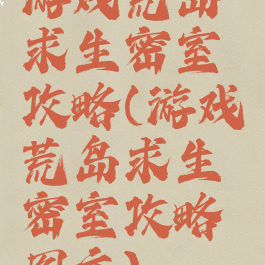 游戏荒岛
求生密室
攻略(游戏
荒岛求生
密室攻略
图文)